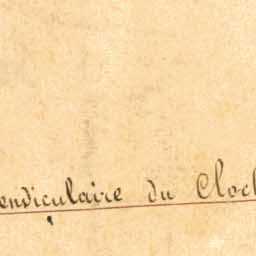 endiculaire du Cloch